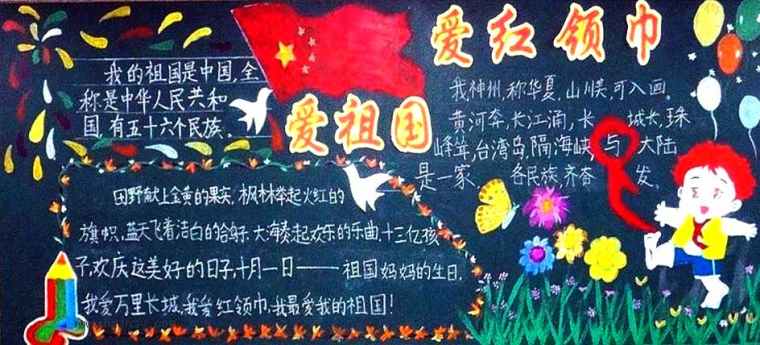 爱红领巾
爱祖国
我的祖国是中国,全
称是中华人民共和
国,有五十六个民族.
我神州,称华夏,山川美,可入画,
黄河奔,长江涌,长城长,珠
峰耸,台湾岛,隔海峡,与大陆
是一家,各民族,齐奋发.
田野献上金黄的果实,枫林举起火红的
旗帜,蓝天飞着洁白的鸽子,大海奏起欢乐的乐曲,十三亿孩
子,欢庆这美好的日子,十月一日——祖国妈妈的生日,
我爱万里长城,我爱红领巾,我最爱我的祖国!